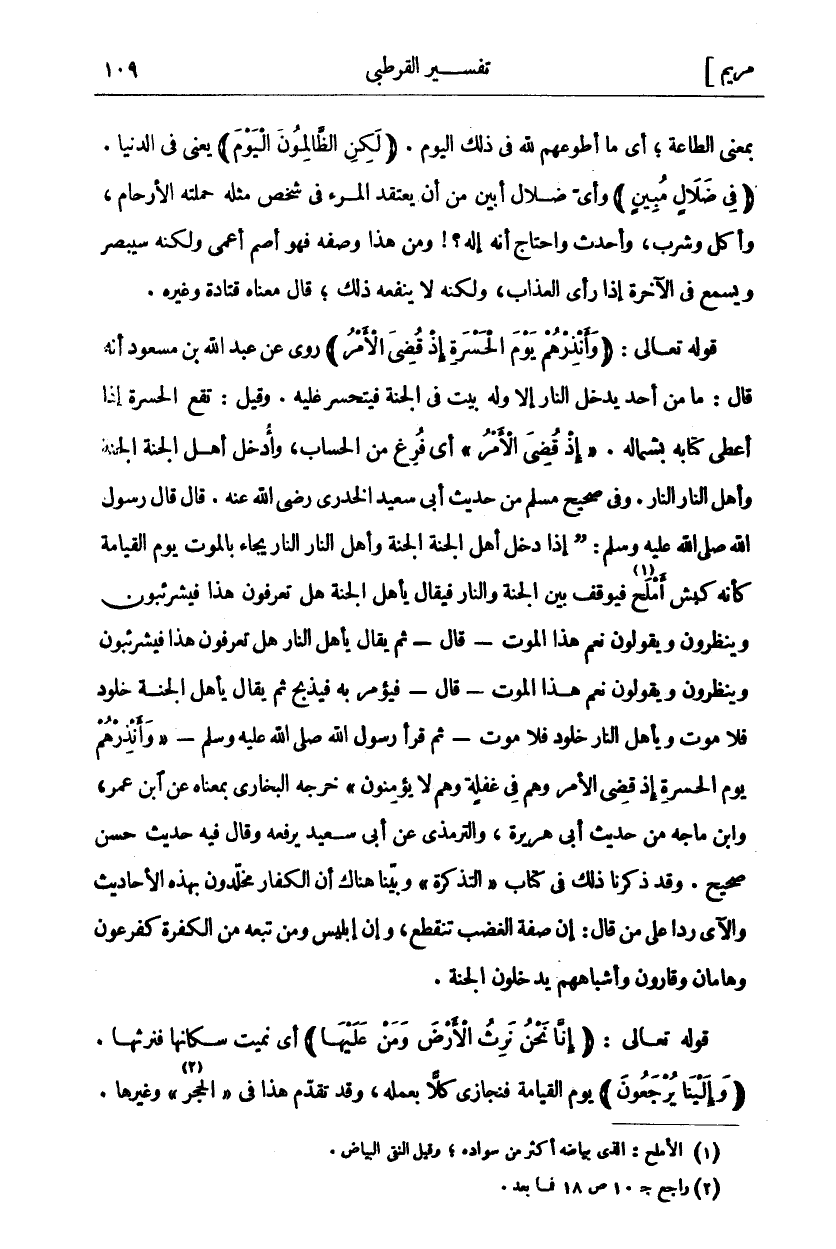 مريم ] تفســير القرطبى ١٠٩
بمعنى الطاعة ؛ أى ما أطوعهم لله فى ذلك اليوم . ( لَكِنِ الظَّالِمُونَ الْيَوْمَ ) يعنى فى الدنيا .
( فِى ضَلَالٍ مُبِينٍ ) وأىّ ضـلال أبين من أن يعتقد المـرء فى شخص مثله حملته الأرحام ،
وأكل وشرب، وأحدث واحتاج أنه إله ؟! ومن هذا وصفه فهو أصم أعمى ولكنه سيبصر
ويسمع فى الآخرة إذا رأى العذاب، ولكنه لا ينفعه ذلك ؛ قال معناه قتادة وغيره .
قوله تعـالى : ( وَأَنْذِرْهُمْ يَوْمَ الْحَسْرَةِ إِذْ قُضِىَ الْأَمْرُ ) روى عن عبد الله بن مسعود أنه
قال : ما من أحد يدخل النار إلا وله بيت فى الجنة فيتحسر عليه . وقيل : تقع الحسرة إذا
أعطى كتابه بشماله . « إِذْ قُضِىَ الْأَمْرُ » أى فُرِغ من الحساب، وأُدخل أهـل الجنة الجنة
وأهل النار النار . وفى صحيح مسلم من حديث أبى سعيد الخدرى رضى الله عنه . قال قال رسول
الله صلى الله عليه وسلم : ” إذا دخل أهل الجنة الجنة وأهل النار النار يجاء بالموت يوم القيامة
كأنه كبش أَمْلَح (١) فيوقف بين الجنة والنار فيقال يأهل الجنة هل تعرفون هذا فيشرئبون
وينظرون ويقولون نعم هذا الموت — قال — ثم يقال يأهل النار هل تعرفون هذا فيشرئبون
وينظرون ويقولون نعم هـذا الموت — قال — فيؤمر به فيذبح ثم يقال يأهل الجنـة خلود
فلا موت ويأهل النار خلود فلا موت — ثم قرأ رسول الله صلى الله عليه وسلم — « وَأَنْذِرْهُمْ
يوم الحسرةِ إذ قضِى الأمر وهم فِى غفلةٍ وهم لا يؤمِنون » خرجه البخارى بمعناه عن ٱبن عمر،
وابن ماجه من حديث أبى هريرة ، والترمذى عن أبى سـعيد يرفعه وقال فيه حديث حسن
صحيح . وقد ذكرنا ذلك فى كتاب « التذكرة » وبيّنا هناك أن الكفار مخلّدون بهذه الأحاديث
والآى ردا على من قال : إن صفة الغضب تنقطع، وإن إبليس ومن تبعه من الكفرة كفرعون
وهامان وقارون وأشباههم يدخلون الجنة .
قوله تعـالى : ( إِنَّا نَحْنُ نَرِثُ الْأَرْضَ وَمَنْ عَلَيْهَـا ) أى نميت سـكانها فنرثهـا .
( وَإِلَيْنَا يُرْجَعُونَ ) يوم القيامة فنجازى كلًّا بعمله ، وقد تقدّم هذا فى « الحِجر » (٢) وغيرها .
(١) الأملح : الذى بياضه أكثر من سواده ؛ وقيل النقى البياض .
(٢) راجع جـ ١٠ ص ١٨ فـا بعد .